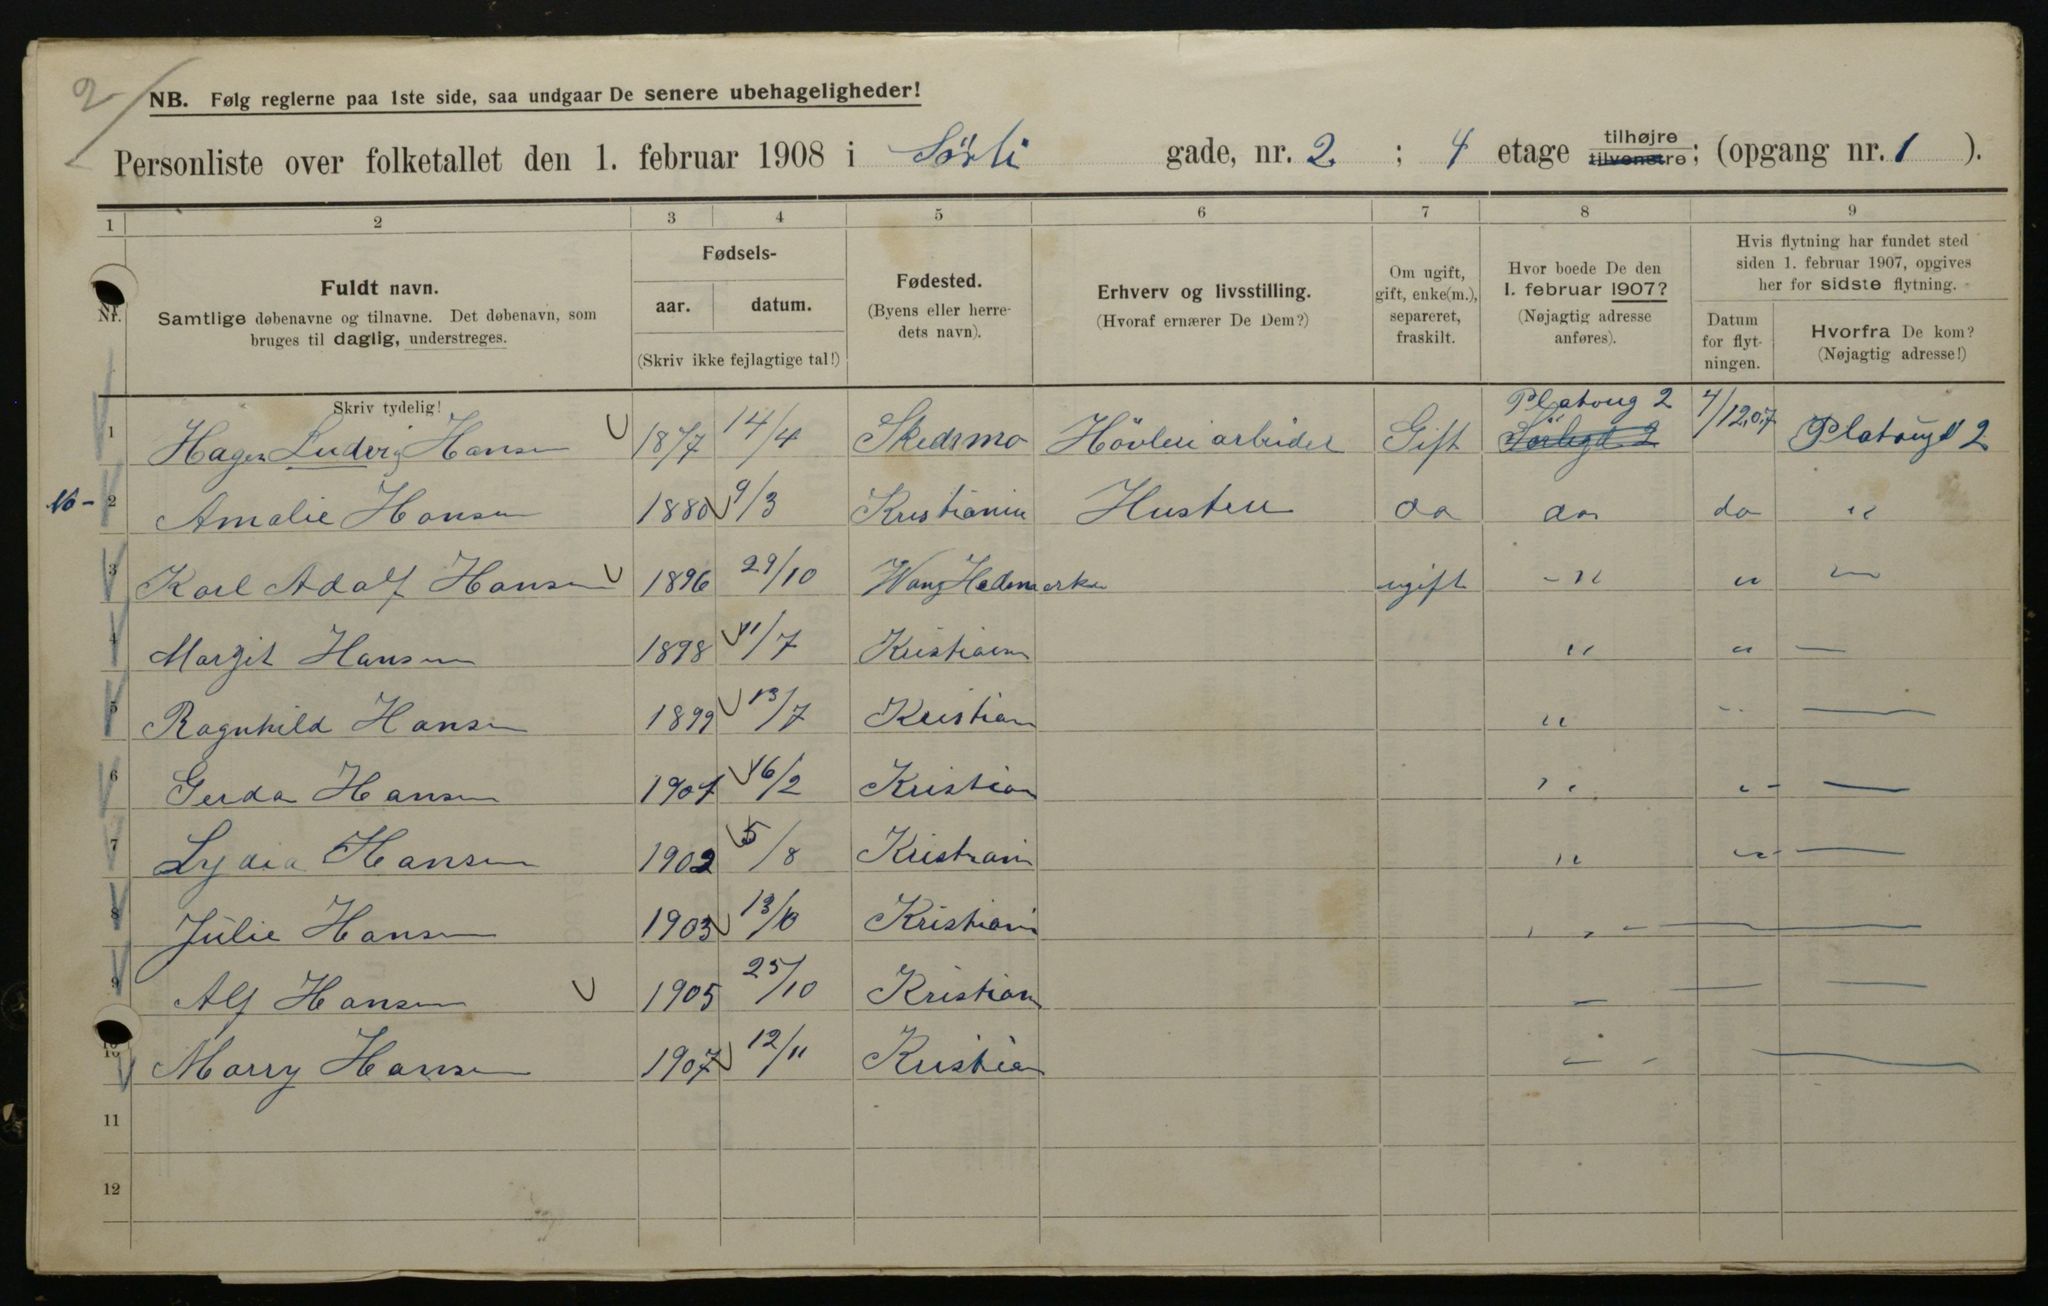 2
NB. Følg reglerne paa 1ste side, saa undgaar De senere ubehageligheder!
Personliste over folketallet den 1. februar 1908 i Sörli gade, nr. 2 ; 4 etage tilhøjre tilvenstre; (opgang nr. 1 ).
1 2 3 4 5 6 7 8 9
Nr.
Fuldt navn.
Samtlige døbenavne og tilnavne. Det døbenavn, som
bruges til daglig, understreges.
Skriv tydelig!
Fødsels-
aar. datum.
(Skriv ikke fejlagtige tal!)
Fødested.
(Byens eller herre-
dets navn).
Erhverv og livsstilling.
(Hvoraf ernærer De Dem?)
Om ugift,
gift, enke(m.),
separeret,
fraskilt.
Hvor boede De den
1. februar 1907?
(Nøjagtig adresse
anføres).
Hvis flytning har fundet sted
siden 1. februar 1907, opgives
her for sidste flytning.
Datum
for flyt-
ningen.
Hvorfra De kom?
(Nøjagtig adresse!)
1 Hagen Ludvig Hansen 1877 14/4 Skedsmo Hövleri arbeider Gift Platoug 2 Sörligd 2 4/12.07 Platougd 2
16- 2 Amalie Hansen 1880 9/3 Kristiania Hustru do do do "
3 Karl Adolf Hansen 1896 29/10 Wang Hedemarken ugift -" " —
4 Margit Hansen 1898 11/7 Kristian " " —
5 Ragnhild Hansen 1899 13/7 Kristian " " —
6 Gerda Hansen 1901 16/2 Kristian " "- —
7 Lydia Hansen 1902 5/8 Kristiani " "- —
8 Julie Hansen 1903 13/10 Kristiani " - —
9 Alf Hansen 1905 25/10 Kristian — — —
10 Marry Hansen 1907 12/11 Kristian — - —
11
12